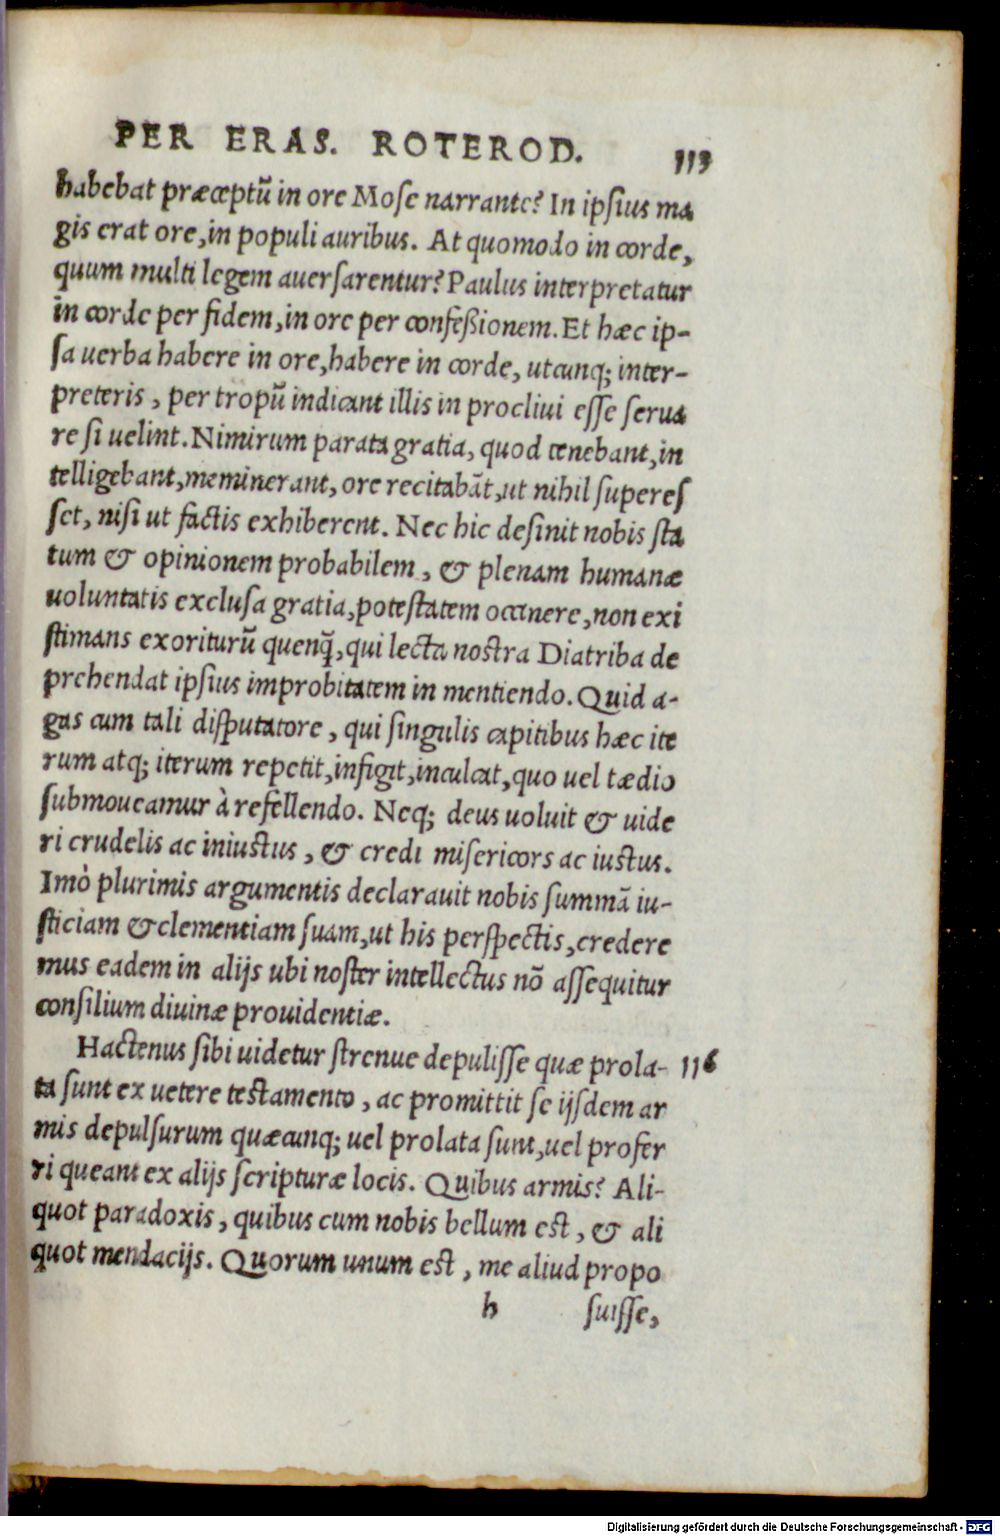 PER ERAS. ROTEROD. 113
habebat præceptũ in ore Mose narrante? In ipsius ma
gis erat ore, in populi auribus. At quomodo in corde,
quum multi legem auersarentur? Paulus interpretatur
in corde per fidem, in ore per confeßionem. Et hæc ip-
sa uerba habere in ore, habere in corde, utcunq; inter-
preteris, per tropũ indicant illis in procliui esse serua
re si uelint. Nimirum parata gratia, quod tenebant, in
telligebant, meminerant, ore recitabãt, ut nihil superes
set, nisi ut factis exhiberent. Nec hic desinit nobis sta
tum & opinionem probabilem, & plenam humanæ
uoluntatis exclusa gratia, potestatem occinere, non exi
stimans exoriturũ quenq̃, qui lecta nostra Diatriba de
prehendat ipsius improbitatem in mentiendo. Quid a-
gas cum tali disputatore, qui singulis capitibus hæc ite
rum atq; iterum repetit, infigit, inculcat, quo uel tædio
submoueamur à refellendo. Neq; deus uoluit & uide
ri crudelis ac iniustus, & credi misericors ac iustus.
Imò plurimis argumentis declarauit nobis summã iu-
sticiam & clementiam suam, ut his perspectis, credere
mus eadem in alijs ubi noster intellectus nõ assequitur
consilium diuinæ prouidentiæ.
Hactenus sibi uidetur strenue depulisse quæ prola- 116
ta sunt ex uetere testamento, ac promittit se ijsdem ar
mis depulsurum quæcunq; uel prolata sunt, uel profer
ri queant ex alijs scripturæ locis. Quibus armis? Ali-
quot paradoxis, quibus cum nobis bellum est, & ali
quot mendacijs. Quorum unum est, me aliud propo
h suisse,
Digitalisierung gefördert durch die Deutsche Forschungsgemeinschaft - DFG